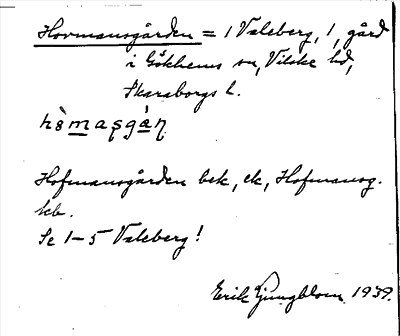 Hovmansgården = 1 Valeberg, 1, gård
i Gökhems sn, Vilske hd,
Skaraborgs l.
Hofmansgården bek, ek, Hofmansg.
kb.
Se 1-5 Valeberg!
Erik Ljungblom 1939.